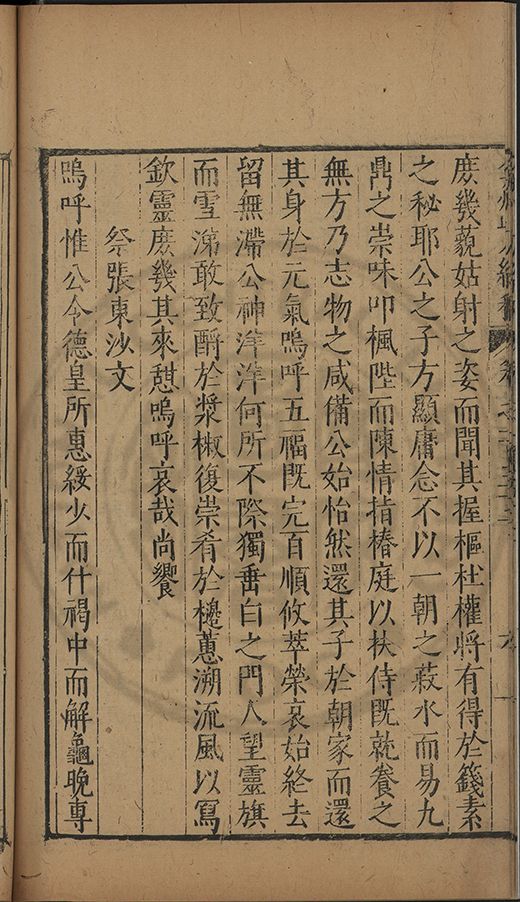 庶幾藐姑射之姿而聞其握樞杜權將有得於籛素
之秘耶公之子方顯庸念不以一朝之菽水而易九
鼎之崇味叩楓陛而陳情指椿庭以扶侍既就養之
無方乃志物之咸備公始怡然還其子於朝家而還
其身於元氣嗚呼五福既完百順攸萃榮哀始終去
留無滯公神洋洋何所不際獨垂白之門人望靈旗
而雪涕敢致酹於漿椒復崇肴於櫋蕙溯流風以寫
欽靈庶幾其來憇嗚呼哀哉尚饗
祭張東沙文
嗚呼惟公令德皇所惠綏少而什褐中而解龜晚專